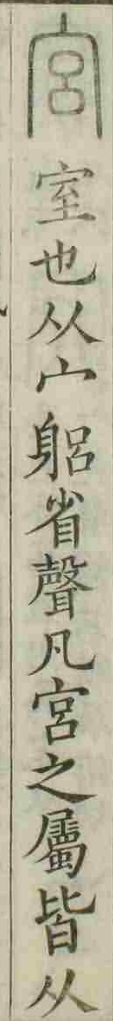 宮室也从宀躳省聲凡宮之屬皆从